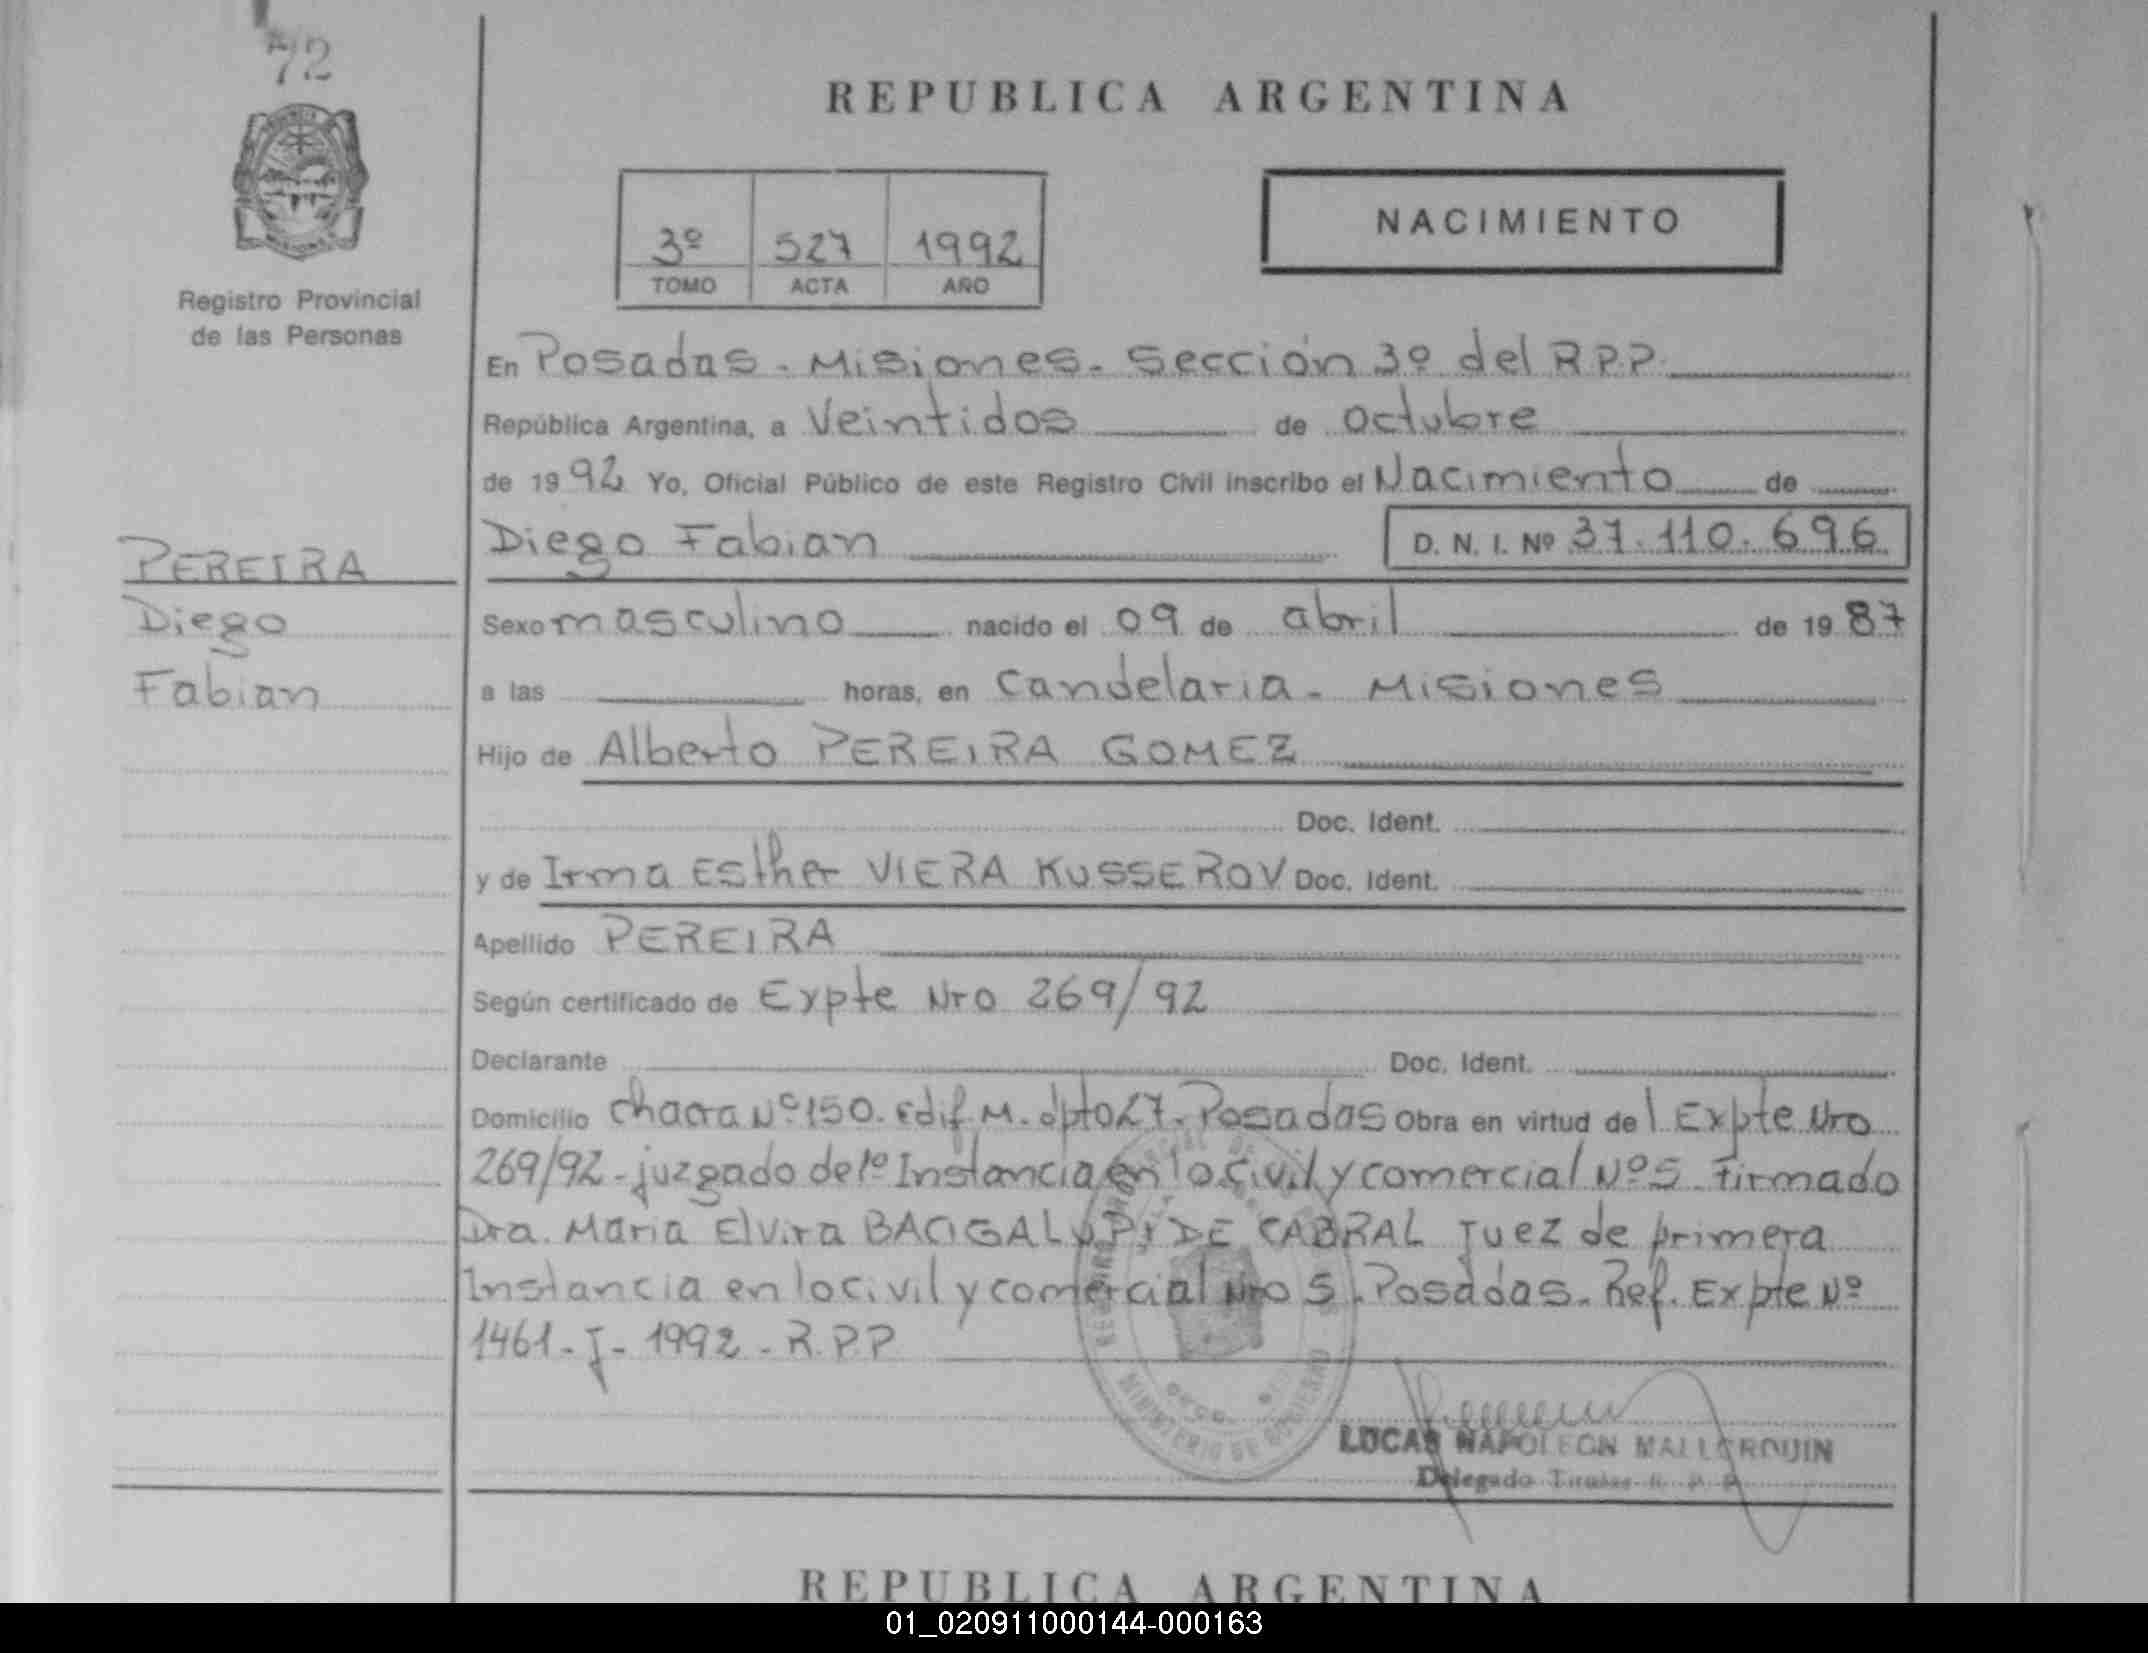 72
REPUBLICA ARGENTINA
Registro Provincial
de las Personas
3º 527 1992
TOMO ACTA AÑO
NACIMIENTO
En Posadas - Misiones - Sección 3º del R.P.P.
República Argentina, a Veintidos de octubre
de 1992 Yo, Oficial Público de este Registro Civil inscribo el Nacimiento de
Diego Fabian D. N. I. Nº 37.110.696
PEREIRA
Diego
Fabian
Sexo masculino nacido el 09 de abril de 1987
a las horas, en Candelaria - Misiones
Hijo de Alberto PEREIRA GOMEZ
Doc. Ident.
y de Irma Esther VIERA KUSSEROV Doc. Ident.
Apellido PEREIRA
Según certificado de Expte Nro 269/92
Declarante Doc. Ident.
Domicilio chacra Nº150. edif. M. dpto 27. Posadas Obra en virtud del Expte Nro
269/92 - juzgado de 1º Instancia en lo civil y comercial Nº5. Firmado
Dra. Maria Elvira BACIGALUPI DE CABRAL Juez de primera
Instancia en lo civil y comercial Nro 5. Posadas. Ref. Expte Nº
1461 - J - 1992 - R.P.P
MINISTERIO DE GOBIERNO
LUCAS NAPOLEON MALLORQUIN
Delegado Titular R. P. P.
REPUBLICA ARGENTINA
01_020911000144-000163